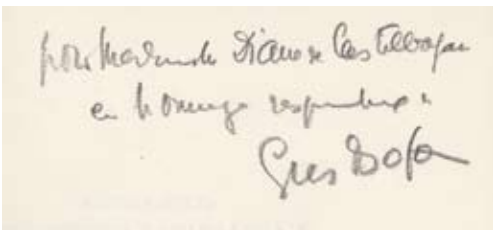 pour Mademoiselle Diane de Castelbajac
en hommage respectueux
Gus Bofa